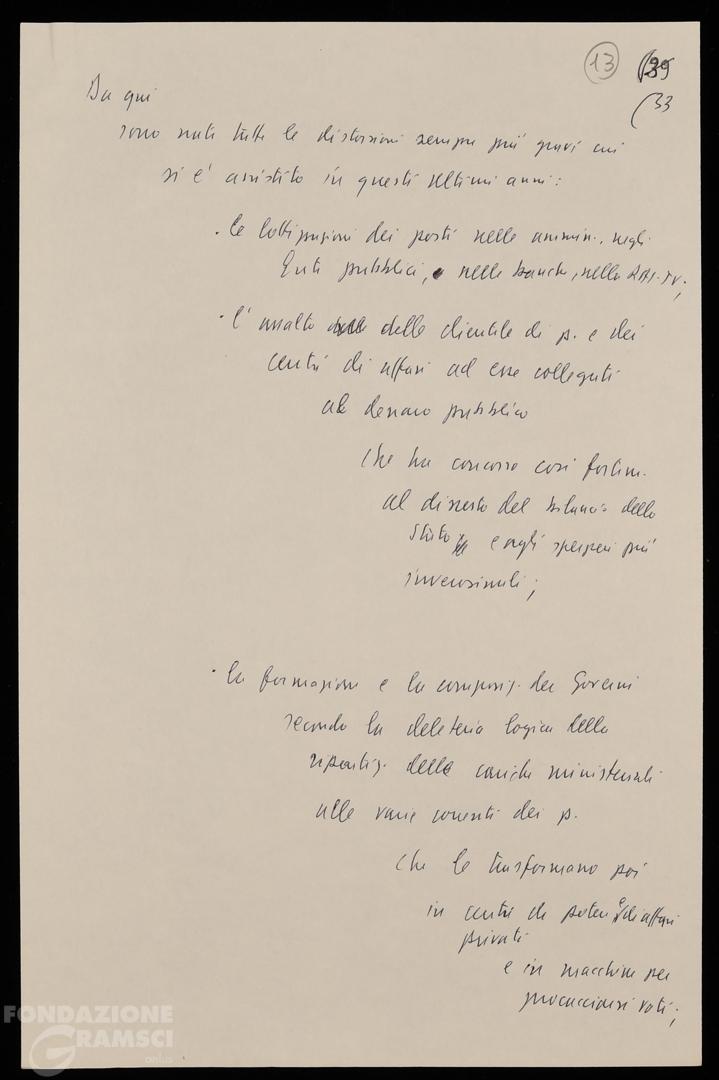 13 39
33
Da qui
sono nate tutte le distorsioni sempre più gravi cui
si è assistito in questi ultimi anni:
· le lottizzazioni dei posti nelle ammin., negli
Enti pubblici, nelle banche, nella RAI-TV;
· l'assalto delle clientele di p. e dei
centri di affari ad esse collegati
al denaro pubblico
che ha concorso così fortem.
al dissesto del bilancio dello
Stato e agli sperperi più
inverosimili;
· la formazione e la composiz. dei Governi
secondo la deleteria logica della
ripartiz. delle cariche ministeriali
alle varie correnti dei p.
che le trasformano poi
in centri di potere e di affari
privati
e in macchine per
procacciarsi voti;
FONDAZIONE
GRAMSCI
onlus